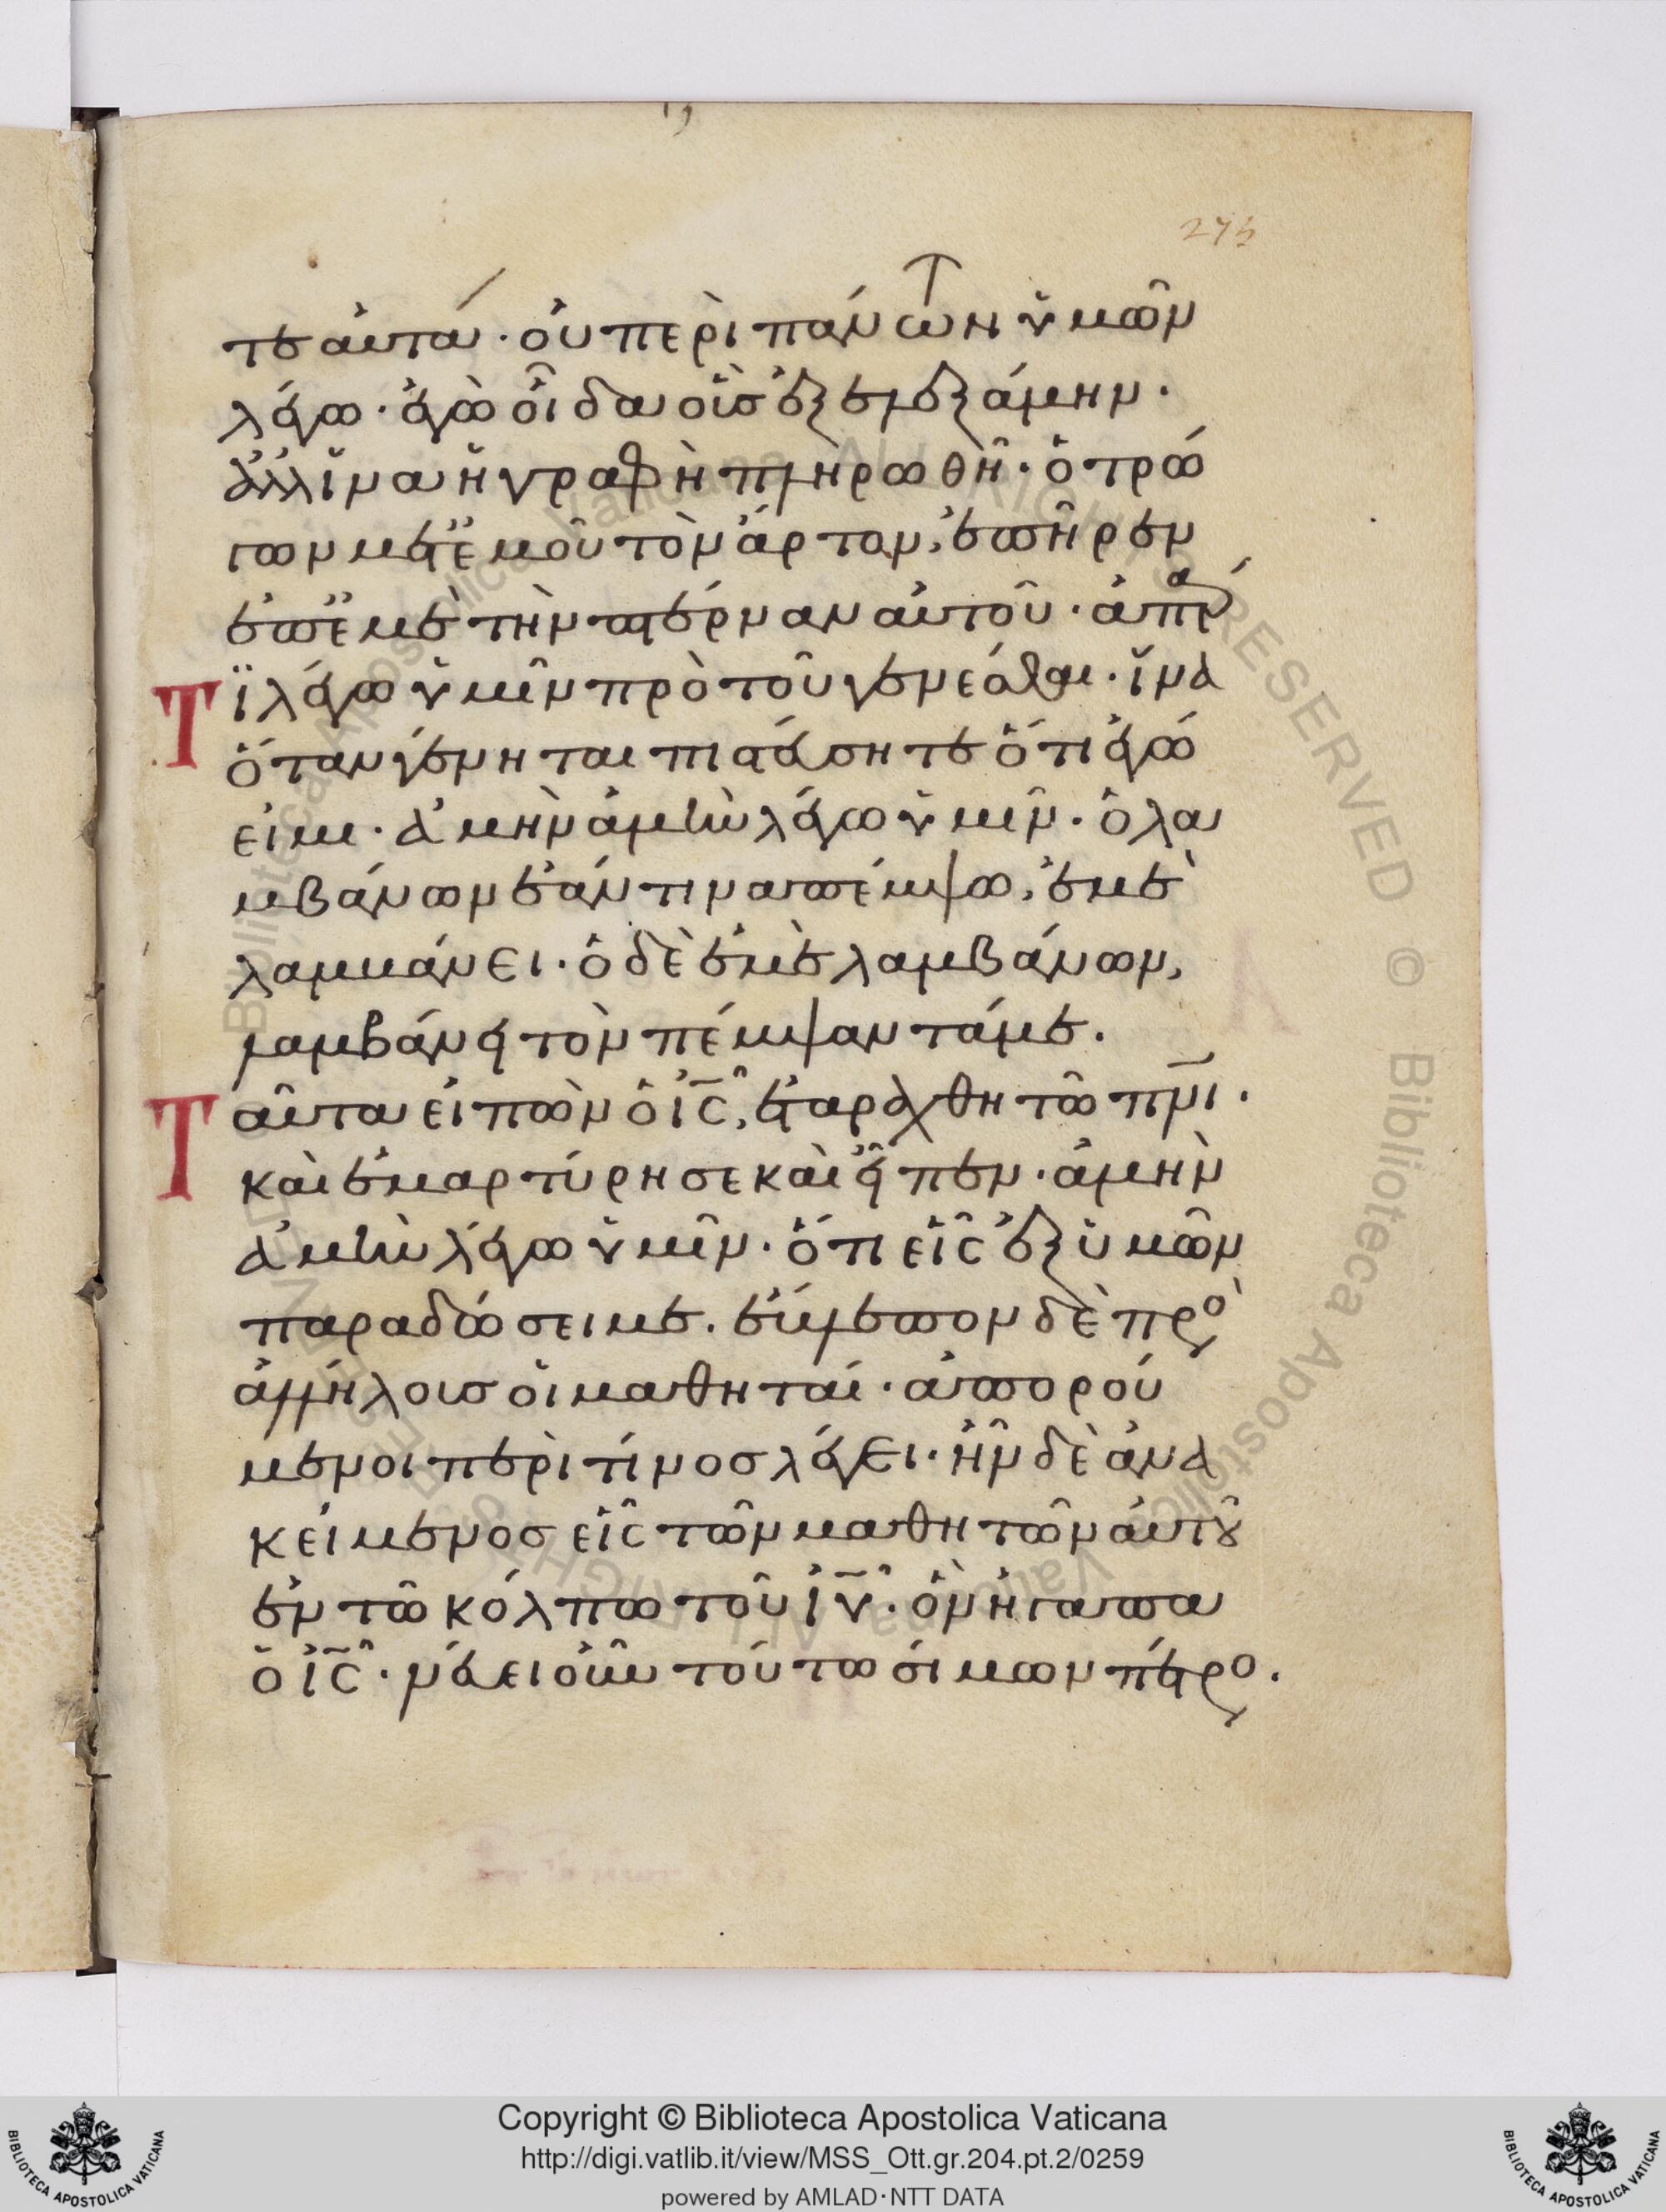 273
τε αὐτά· οὐ περὶ πάντων ὑμῶν
λέγω· ἐγὼ οἶδα οἷς ἐξελεξάμην·
ἀλλ ἵνα ἡ γραφὴ πληρωθῆ· ὁ τρώ
γων μετ ἐμοῦ τὸν ἄρτον, ἐπῆρεν
ἐπ ἐμὲ τὴν πτέρναν αὐτοῦ· ἀπάρ
Τι λέγω ὑμῖν πρὸ τοῦ γενέσθαι· ἵνα
ὅταν γένηται πιστεύσητε ὅτι ἐγώ
εἰμι· ἀμὴν ἀμὴν λέγω ὑμῖν· ὁ λα
μβάνων ἐάν τινα πέμψω, ἐμὲ
λαμμάνει· ὁ δὲ ἐμὲ λαμβάνων,
λαμβάνει τὸν πέμψαντά με.
Ταῦτα εἰπὼν ὁ ις, ἐταράχθη τῶ πνι·
καὶ ἐμαρτύρησε καὶ εἶπεν· ἀμὴν
ἀμὴν λέγω ὑμῖν· ὅτι εἷς ἐξ ὑμῶν
παραδώσει με. ἔβλεπον δὲ πρὸ
ἀλλήλοις οἱ μαθηταί· ἀπορού
μενοι περὶ τίνος λέγει· ἦν δὲ ἀνα
κείμενος εἷς τῶν μαθητῶν αὐτοῦ
ἐν τῶ κόλπω τοῦ ιυ· ὃν ἠγάπα
ὁ ις· νεύει οὖν τούτω σίμων πέτρο.
Copyright © Biblioteca Apostolica Vaticana
http://digi.vatlib.it/view/MSS_Ott.gr.204.pt.2/0259
powered by AMLAD·NTT DATA